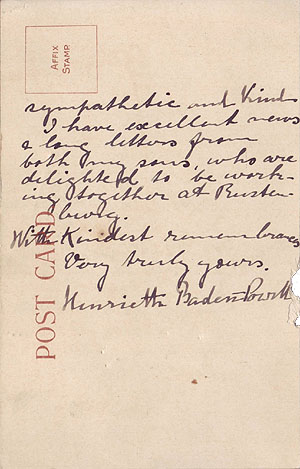 AFFIX
STAMP
POST CARD
sympathetic and Kind
I have excellent news
& long letters from
both my sons, who are
delighted to be work-
ing together at Rusten-
burg.
With Kindest remembrances
Very truly yours.
Henrietta Baden-Powell